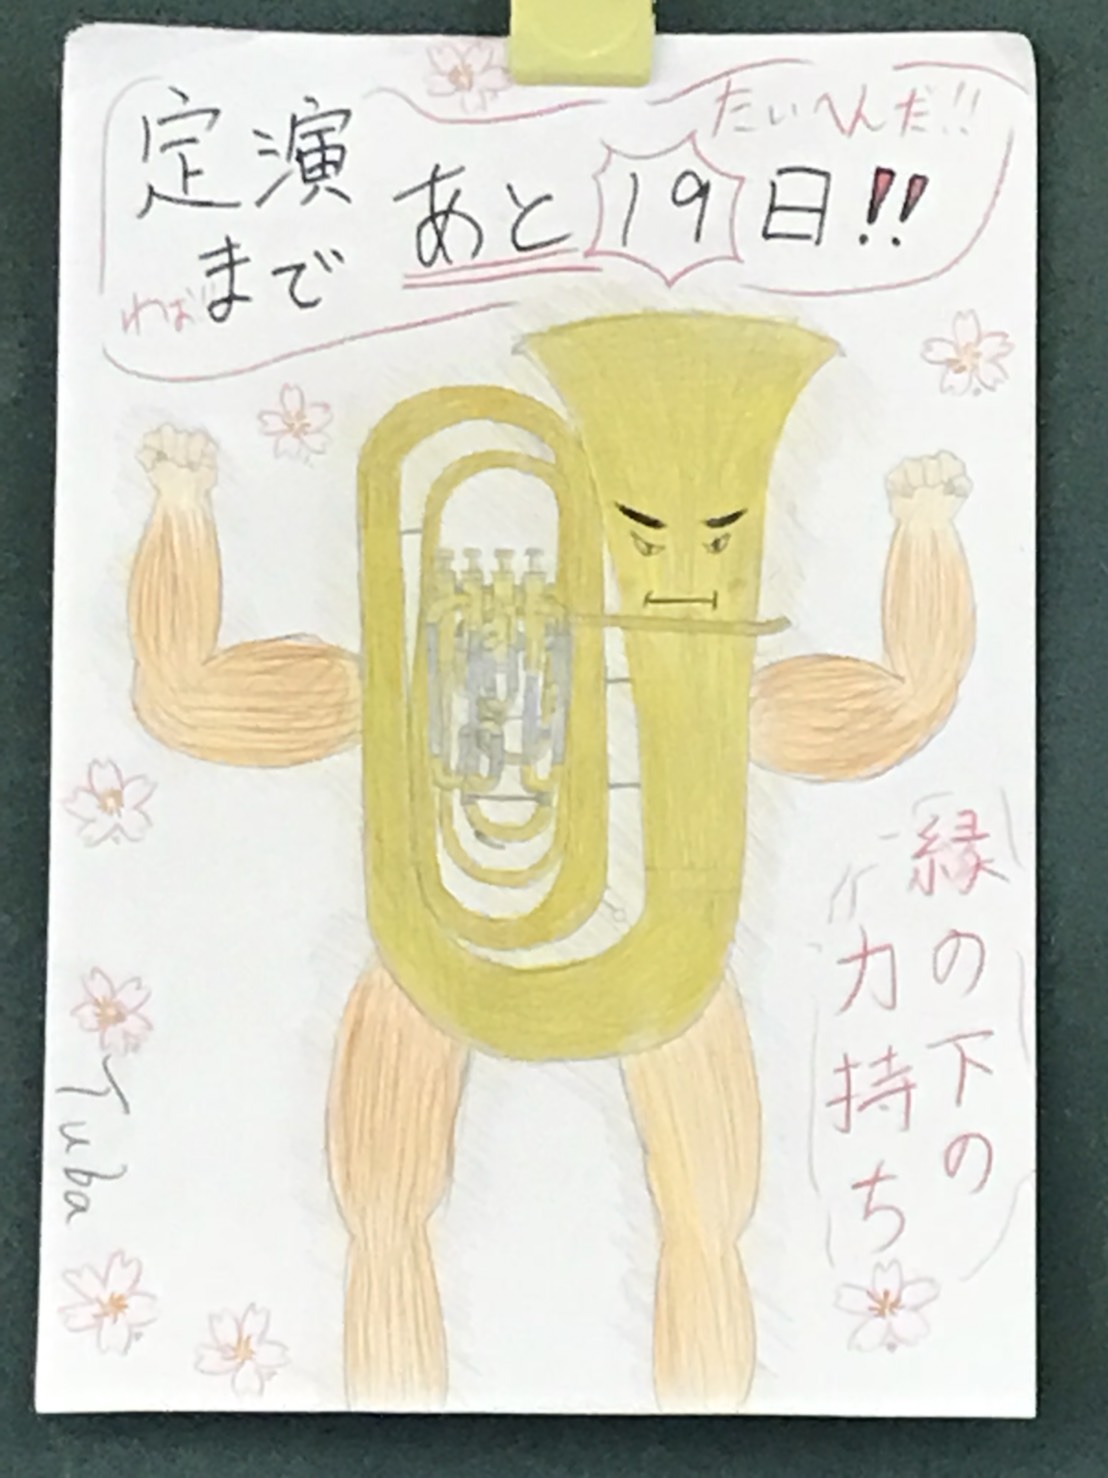 たいへんだ!!
定演
まで
あと19日!!
わぉ
縁の下の
力持ち
Tuba